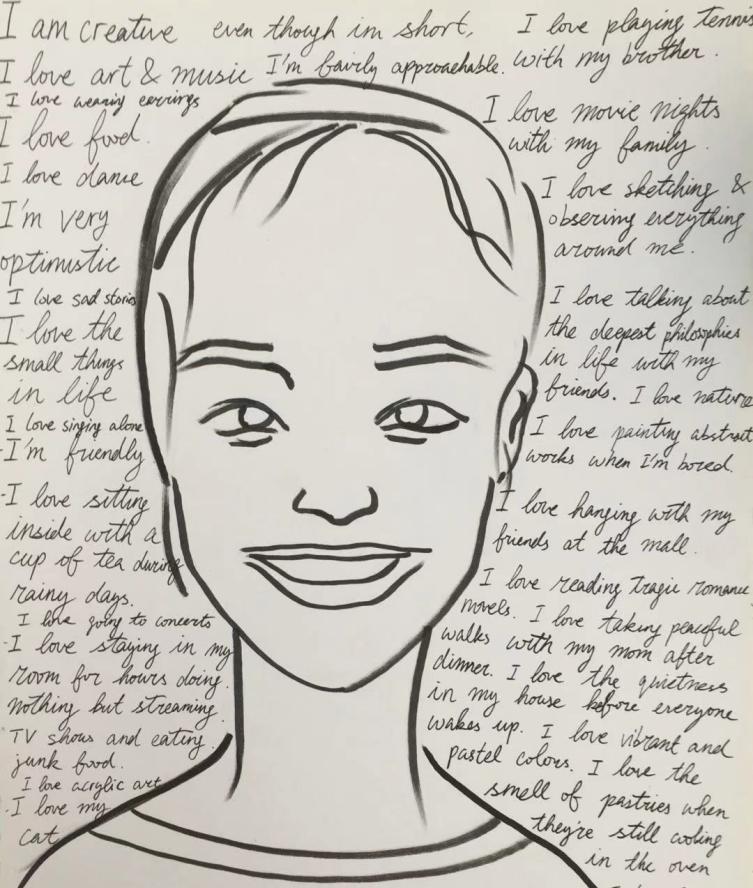 I am creative
I love art & music
I love wearing earrings
I love food.
I love danse
I'm very
optimistic
I love sad stories
I love the
small things
in life
I love singing alone
-I'm friendly
-I love sitting
inside with a
cup of tea during
rainy days.
I love going to concerts
-I love staying in my
room for hours doing
nothing but streaming
TV shows and eating
junk food.
I love acrylic art
-I love my
cat
even though im short,
I'm fairly approachable.
I love playing tennis
with my brother.
I love movie nights
with my family.
I love sketching &
obsering everything
around me.
I love talking about
the deepest philosophies
in life with my
friends. I love nature
I love painting abstract
works when I'm bored.
I love hanging with my
friends at the mall.
I love reading tragic romance
novels. I love taking peaceful
walks with my mom after
dinner. I love the quietness
in my house before everyone
wakes up. I love vibrant and
pastel colors. I love the
smell of pastries when
they're still cooling
in the oven